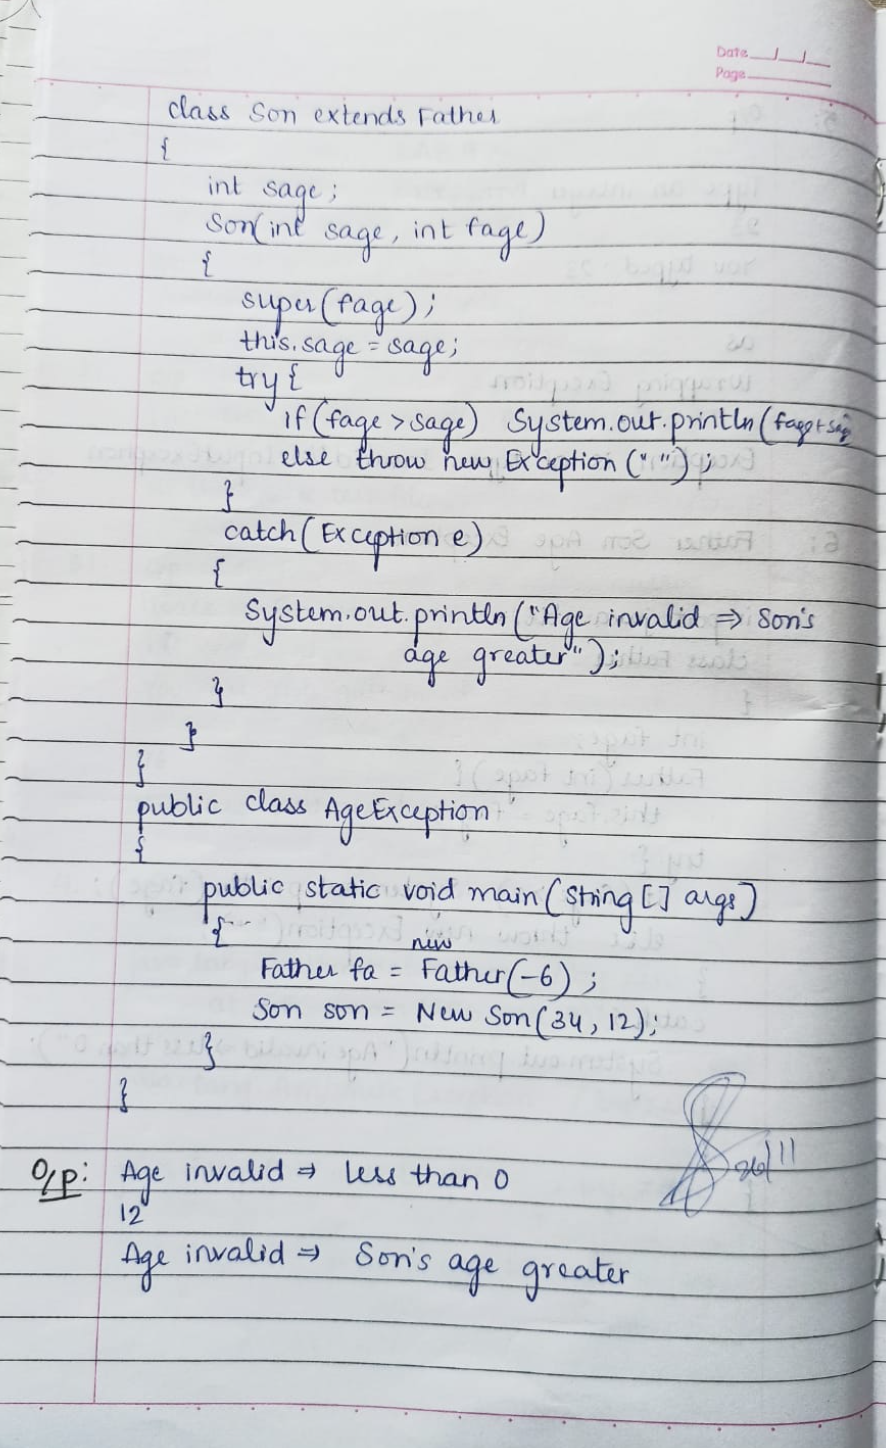 Date
Page
class Son extends Father
{
int sage;
Son(int sage, int fage)
{
super(fage);
this.sage = sage;
try {
if(fage > sage) System.out.println(fage+sage
else throw new Exception (" ");
}
catch(Exception e)
{
System.out.println("Age invalid ⇒ Son's
age greater");
}
}
}
public class AgeException
{
public static void main(String [] args)
{
new
Father fa = Father(-6);
Son son = New Son(34, 12);
}
}
26/11
O/p: Age invalid ⇒ less than 0
12
Age invalid ⇒ Son's age greater